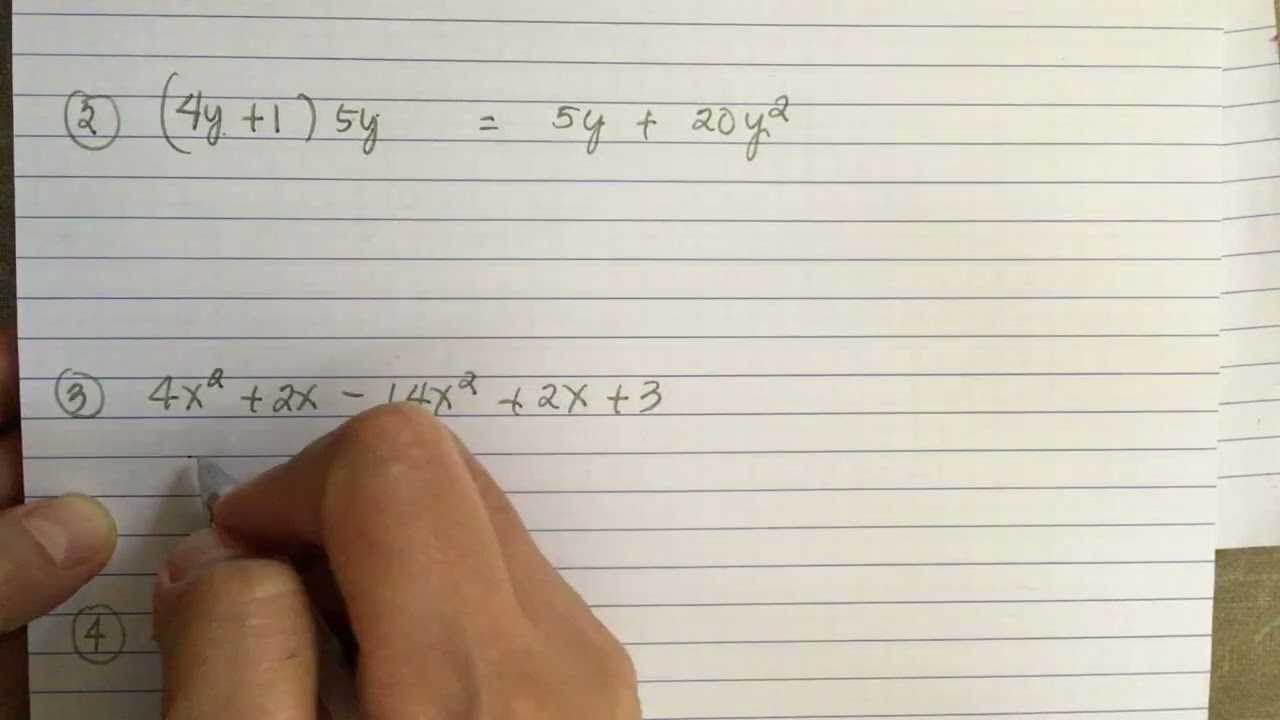 ② (4y + 1) 5y = 5y + 20y²
③ 4x² + 2x - 14x² + 2x + 3
④